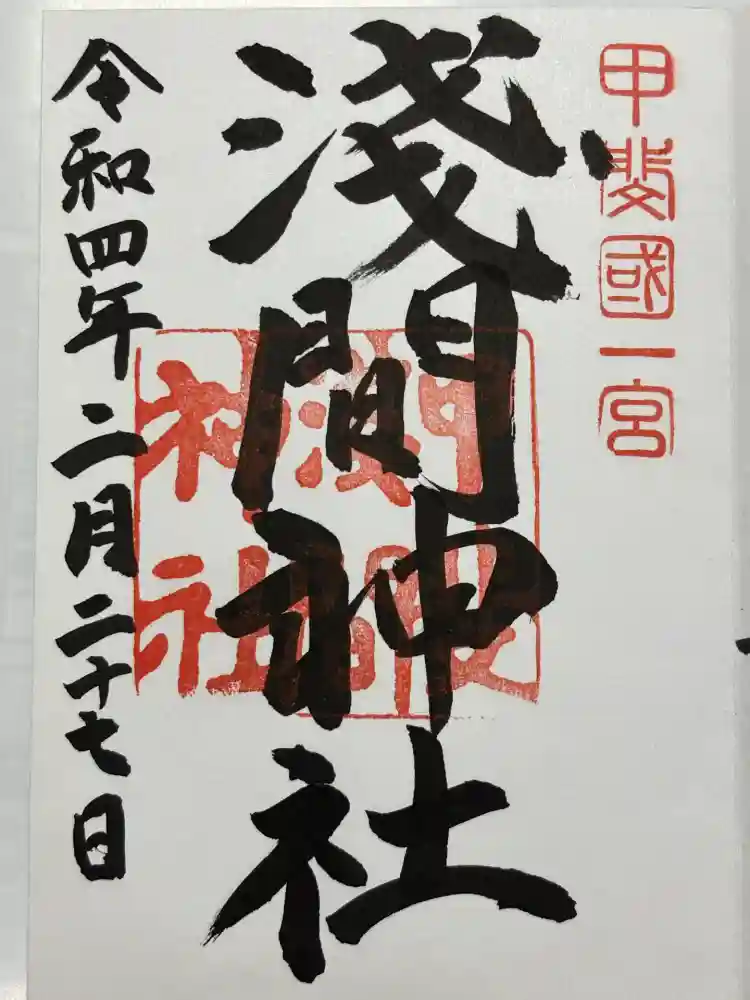 甲斐國一宮
淺間神社
令和四年二月二十七日